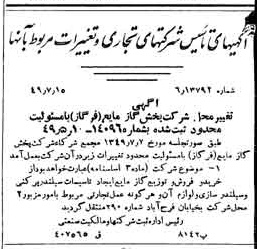 آگهیهای تأسیس شرکتهای تجارتی و تغییرات مربوط بآنها
شماره ۶۱۳۷۹۲ ۴۹٫۷٫۱۵
آگهی
تغییر محل شرکت پخش گاز مایع (فرگاز) بامسئولیت
محدود ثبت شده بشماره ۱۴۰۹۶-۱۰ر۵ر۴۹
طبق صورتجلسه مورخ ۱۳۴۹٫۷٫۲ مجمع شرکاء شرکت پخش
گاز مایع (فرگاز) بامسئولیت محدود تغییرات زیر در آن شرکت بعمل آمد
۱- موضوع شرکت (ماده ۳ اساسنامه) عبارتخواهد بود از
خرید و فروش و توزیع گاز مایع ایجاد تاسیسات سیلندر پر کنی
وسیلندرسازی و لوازم آن و هر گونه عمل تجارتی مربوط بامور مزبور ۲-
محل شرکت بخیابان فرح آباد شماره ۲۹۰ منتقل گردید
رئیس اداره ثبت شرکتها و مالکیت صنعتی
پ ۸۱۴۲ ق ۴۰۷۵۶۵